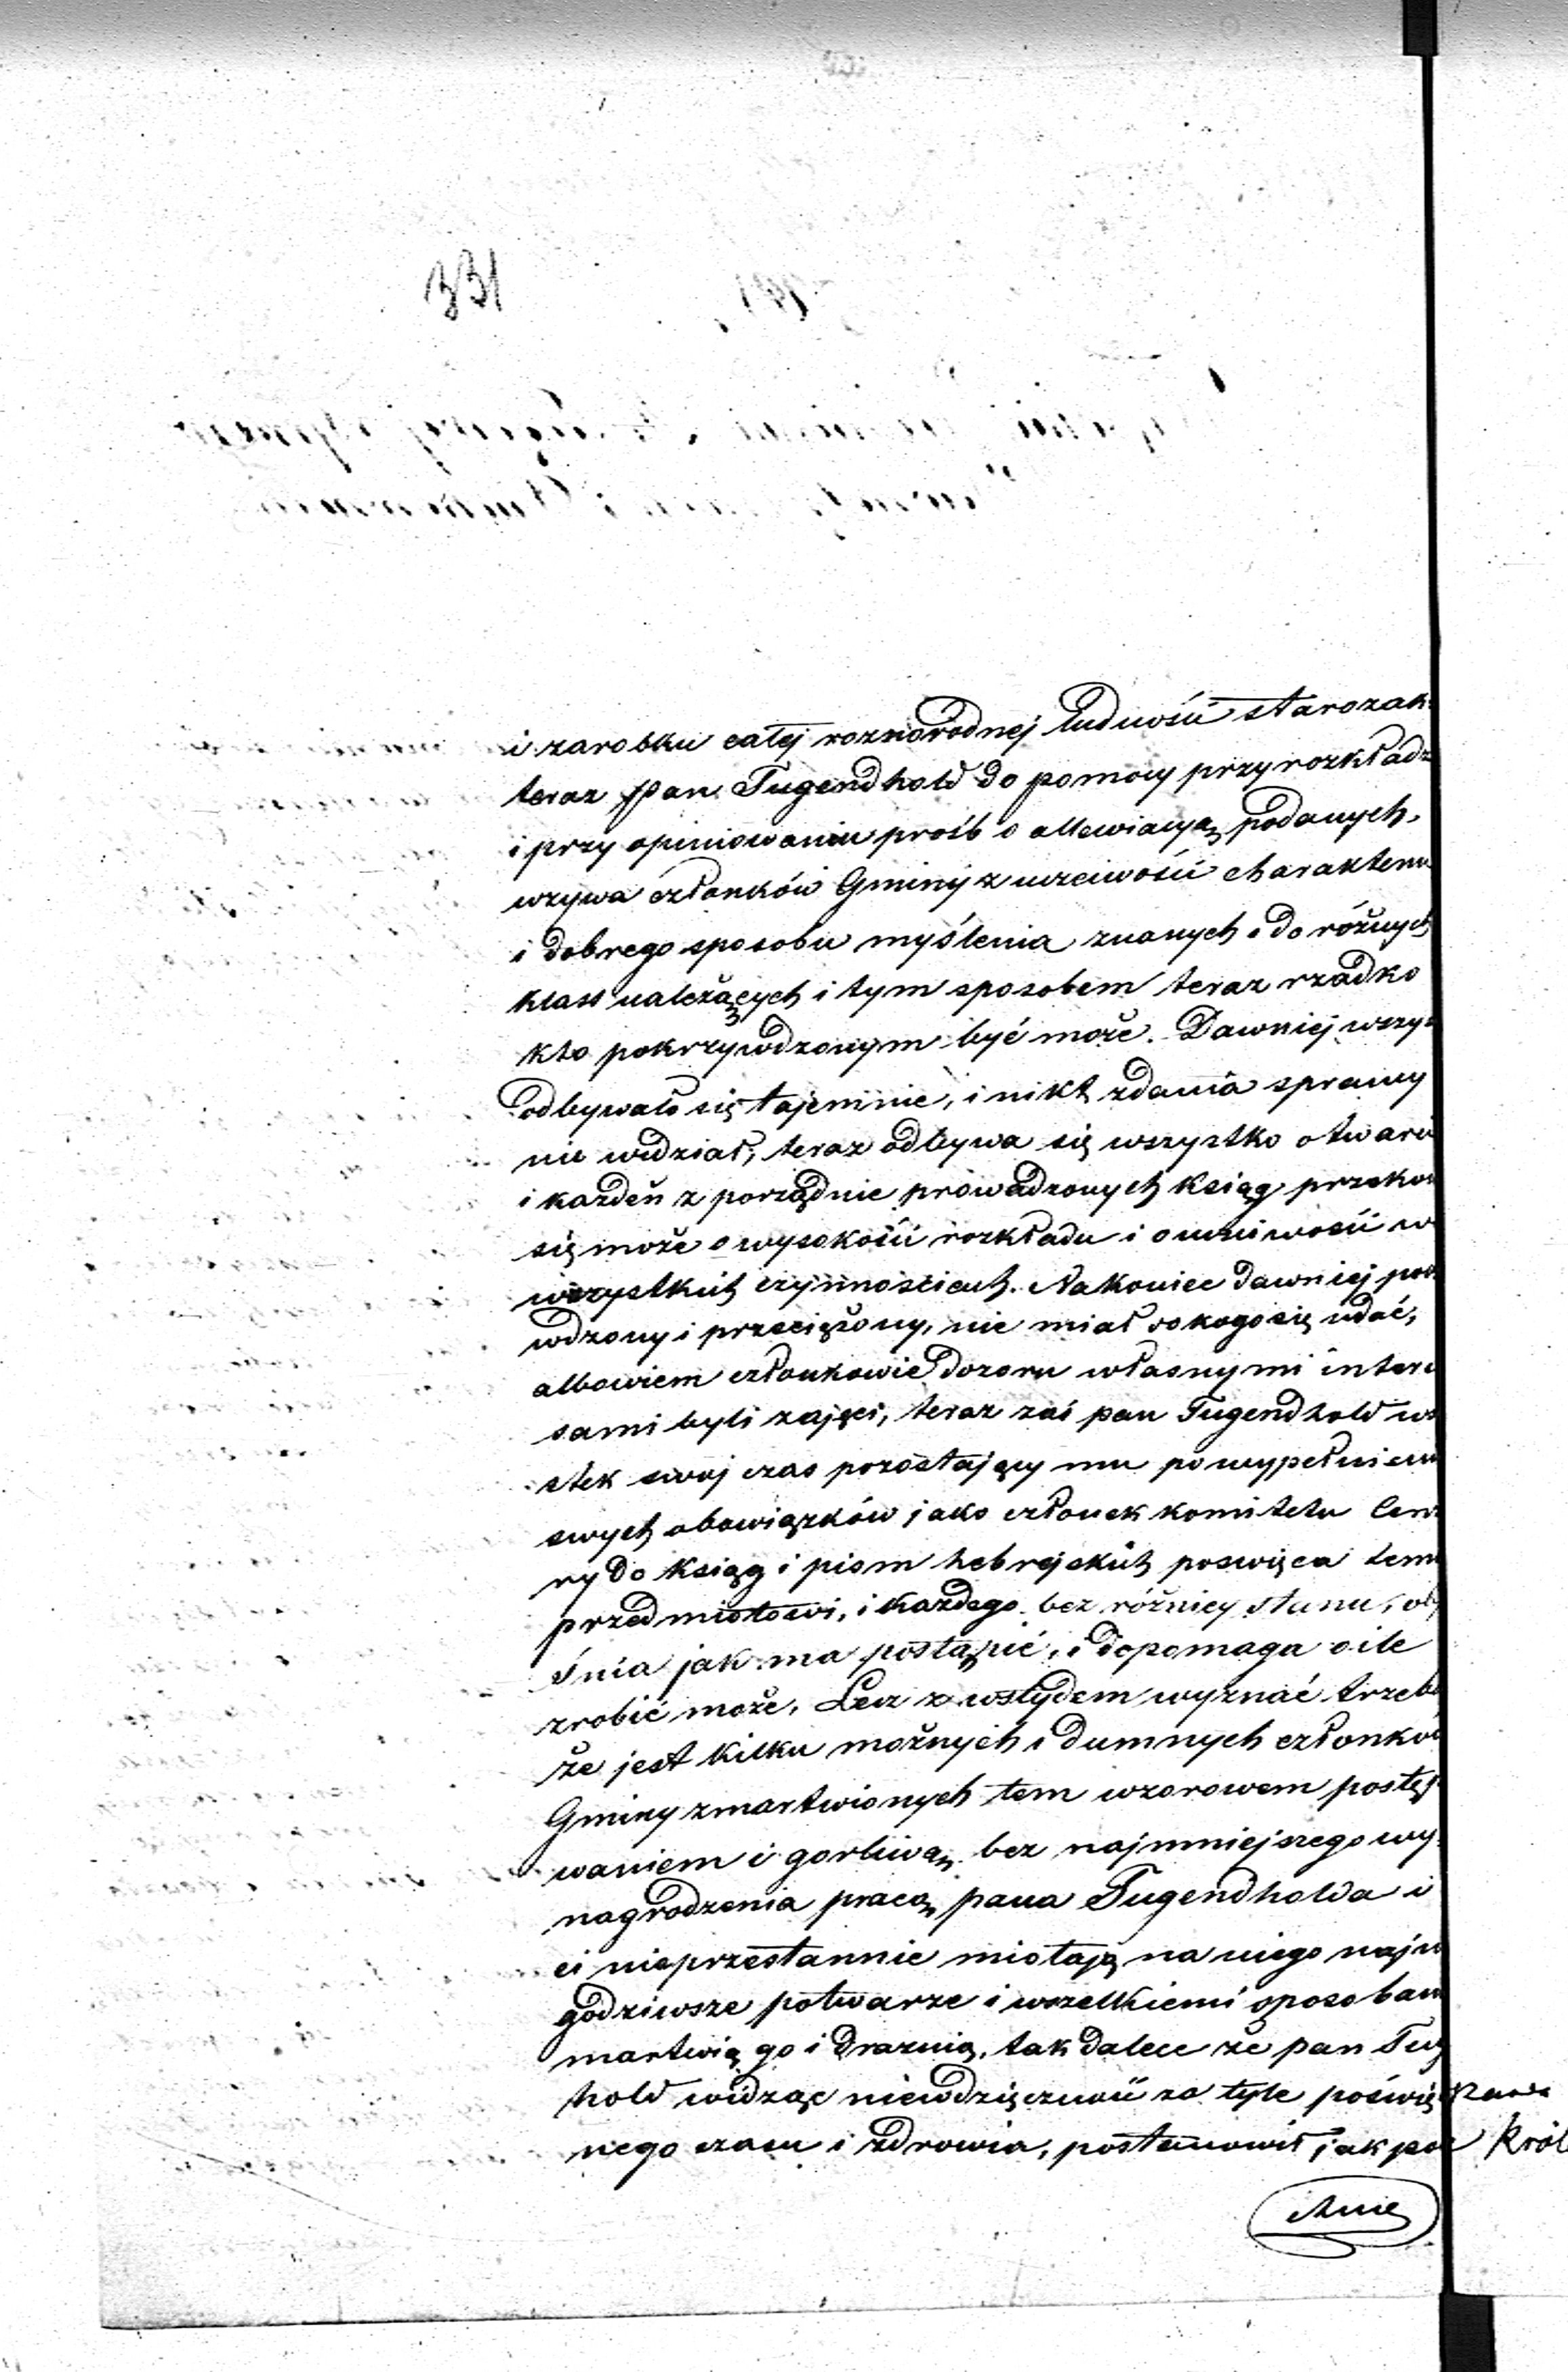 331
i zarobku całej roznorodnej ludności starozak
teraz pan Tugendhold do pomocy przy rozkładz
i przy opiniowaniu prośb o allewiacyą podanych,
wzywa członków Gminy z uczciwości charakteru
i dobrego sposobu myślenia znanych i do różnych
klass należących i tym sposobem teraz rzadko
kto pokrzywdzonym być może. Dawniej wszys
odbywało się tajemnie, i nikt zdania sprawy
nie widział, teraz odbywa się wszystko otwarci
i każden z porządnie prowadzonych ksiąg przekon
się może o wysokości rozkładu i o uczciwości w
wszystkich czynnościach. Nakoniec dawniej pok
wdzony i przeciężony, nie miał do kogo się udać,
albowiem członkowie Dozoru własnymi intere
sami byli zajęci, teraz zaś pan Tugendhold ws
stek swoj czas pozostający mu po wypełnieniu
swych obowiązków jako członek komitetu Cenz
ry do ksiąg i pism hebrejskich poswięca temu
przedmiotowi, i każdego bez różnicy stanu, obj
śnia jak ma postąpić, i dopomaga o ile
zrobić może, Lecz z wstydem wyznać trzeba
że jest kilku możnych i dumnych członków
Gminy zmartwionych tem wzorowem postęp
waniem i gorliwą bez najmniejszego wy
nagrodzenia pracą pana Tugendholda i
ci nieprzestannie miotają na niego najn
godziwsze potwarze i wszelkiemi sposobam
martwią go i draznią, tak dalece że pan Tug
hold widząc niewdzięczność za tyle poświę
nego czasu i zdrowia, postanowił jak po Król